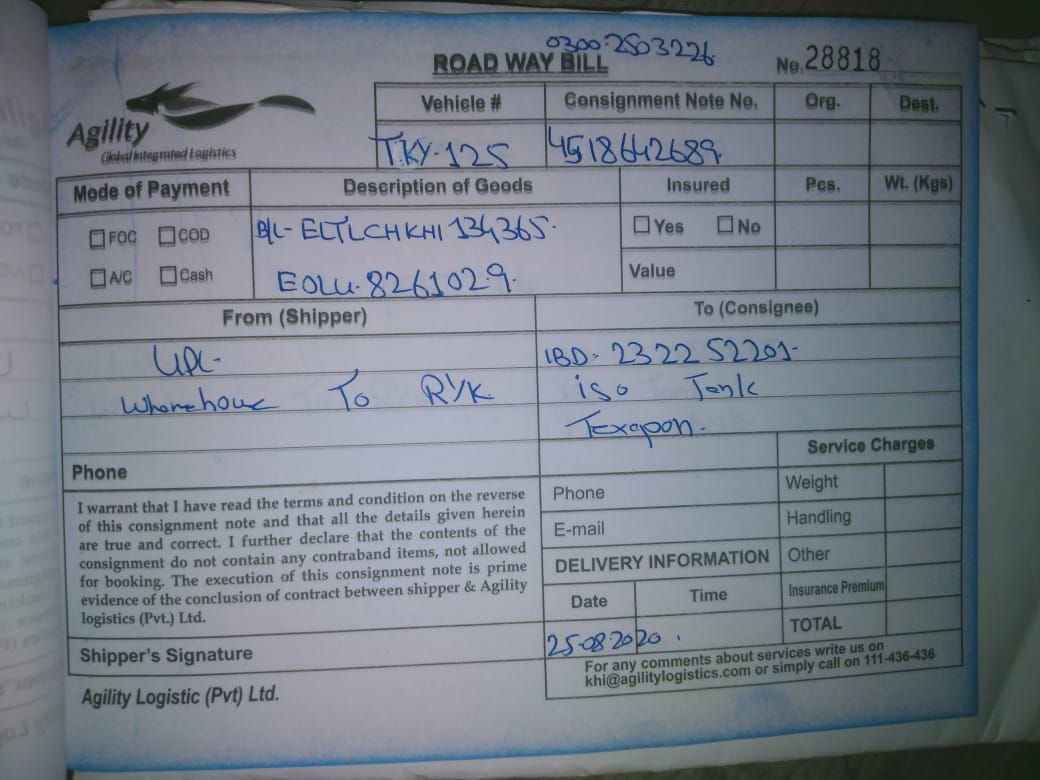 0300-2503226
ROAD WAY BILL
No. 28818
Agility
Global Integrated Logistics
Vehicle #
Consignment Note No.
Org.
Dest.
TKY-125
4518642689
Mode of Payment
Description of Goods
Insured
Pcs.
Wt. (Kgs)
FOC
COD
B/L- ELTLCHKHI 134365.
Yes
No
A/C
Cash
EOLU-8261029.
Value
From (Shipper)
To (Consignee)
IBD- 232252201-
To R/Y/K
iso Tank
Texapon.
Phone
Service Charges
I warrant that I have read the terms and condition on the reverse
of this consignment note and that all the details given herein
are true and correct. I further declare that the contents of the
consignment do not contain any contraband items, not allowed
for booking. The execution of this consignment note is prime
evidence of the conclusion of contract between shipper & Agility
logistics (Pvt.) Ltd.
Phone
Weight
E-mail
Handling
DELIVERY INFORMATION
Other
Date
Time
Insurance Premium
25-08-2020.
TOTAL
Shipper's Signature
For any comments about services write us on
khi@agilitylogistics.com or simply call on 111-436-436
Agility Logistic (Pvt) Ltd.